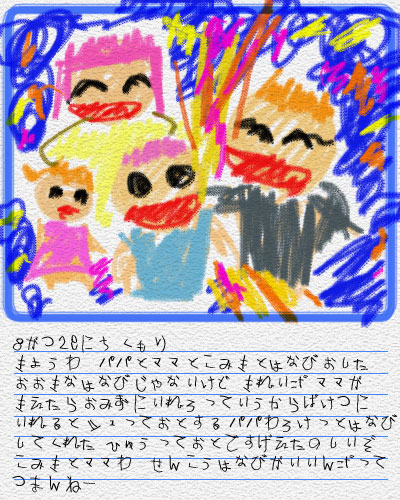 8がつ28にち くもり
きょうわ パパとママとこみきとはなびおした
おおきなはなびじゃないけど きれい ママが
きえたらおみずにいれろっていうからばけつに
いれるとじゅっておとする パパわろけっとはなび
してくれた ひゅうっておとですげえたのしいぞ
こみきとママわ せんこうはなびがいいんだって
つまんねー